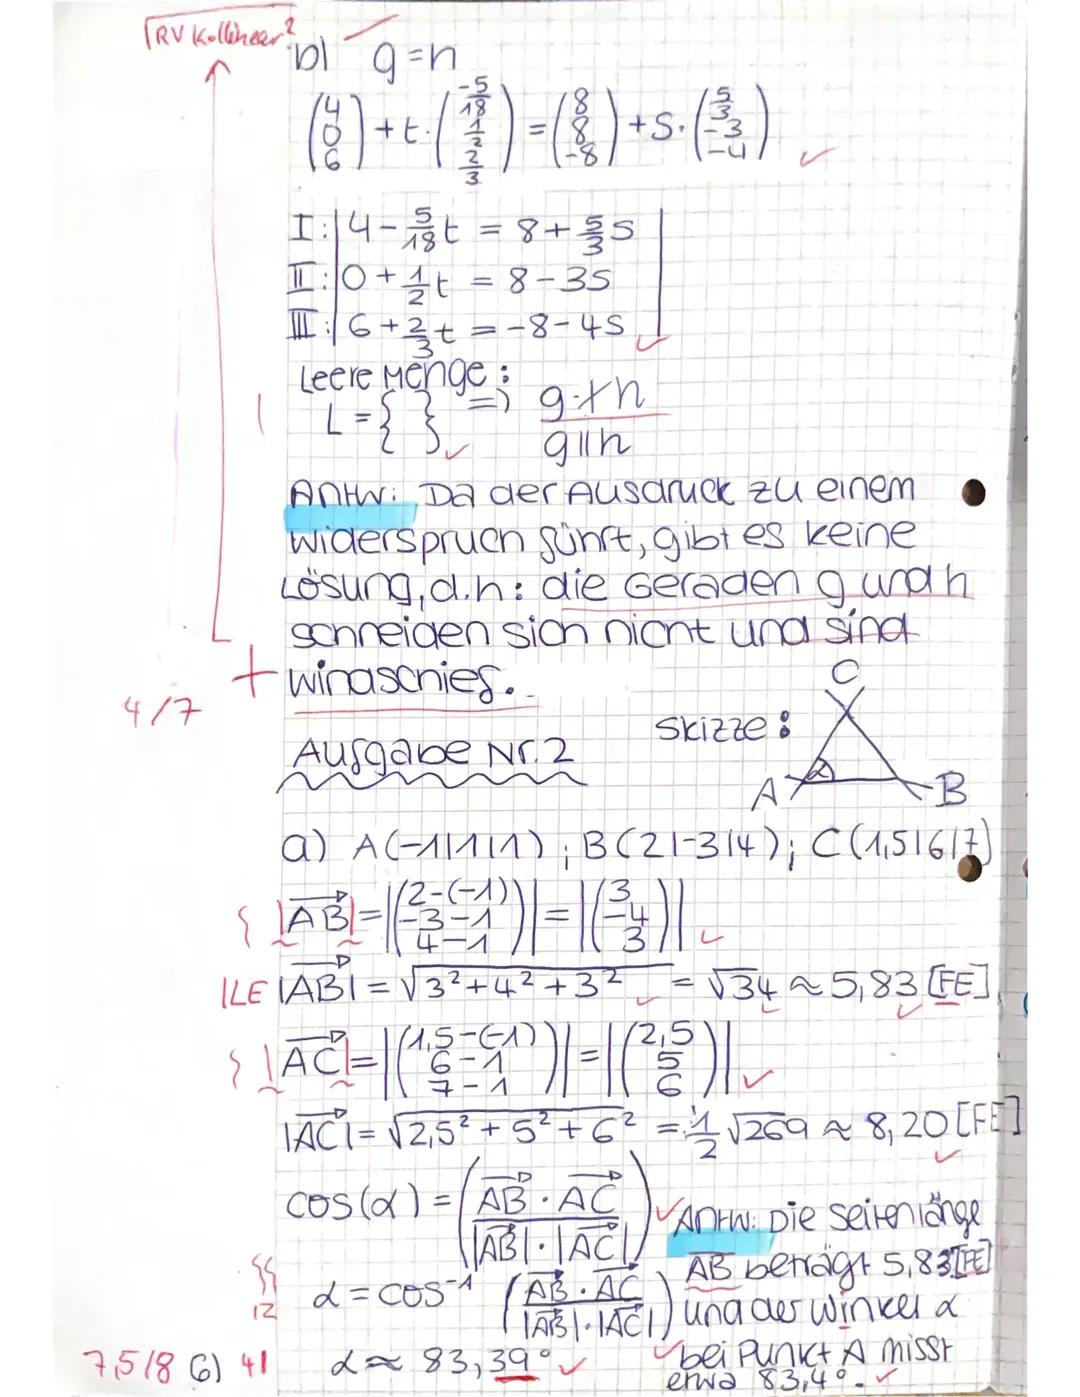 RV Kollinear?
b) g=h
(4 0 6) + t·(-5/18 1/2 2/3) = (8 8 -8) + s·(5/3 -3 -4)
I: 4 - 5/18 t = 8 + 5/3 s
II: 0 + 1/2 t = 8 - 3s
III: 6 + 2/3 t = -8 - 4s
Leere Menge:
L = { } => g ∦ h
g ∥ h
Antw: Da der Ausdruck zu einem
Widerspruch führt, gibt es keine
Lösung, d.h: die Geraden g und h
schneiden sich nicht und sind
windschief.
4/7
Aufgabe Nr. 2
Skizze:
C
A α B
a) A(-1|1|1); B(2|-3|4); C(1,5|6|7)
|AB| = |(2-(-1) -3-1 4-1)| = |(3 -4 3)|
1LE |AB| = √3²+4²+3² = √34 ≈ 5,83 [FE]
|AC| = |(1,5-(-1) 6-1 7-1)| = |(2,5 5 6)|
|AC| = √2,5²+5²+6² = 1/2 √269 ≈ 8,20 [FE]
cos(α) = (AB · AC / |AB| · |AC|)
α = cos⁻¹ (AB · AC / |AB| · |AC|)
α ≈ 83,39°
Antw: Die Seitenlänge
AB beträgt 5,83 [FE]
und der Winkel α
bei Punkt A misst
etwa 83,4°.
7,5/8 6) 41